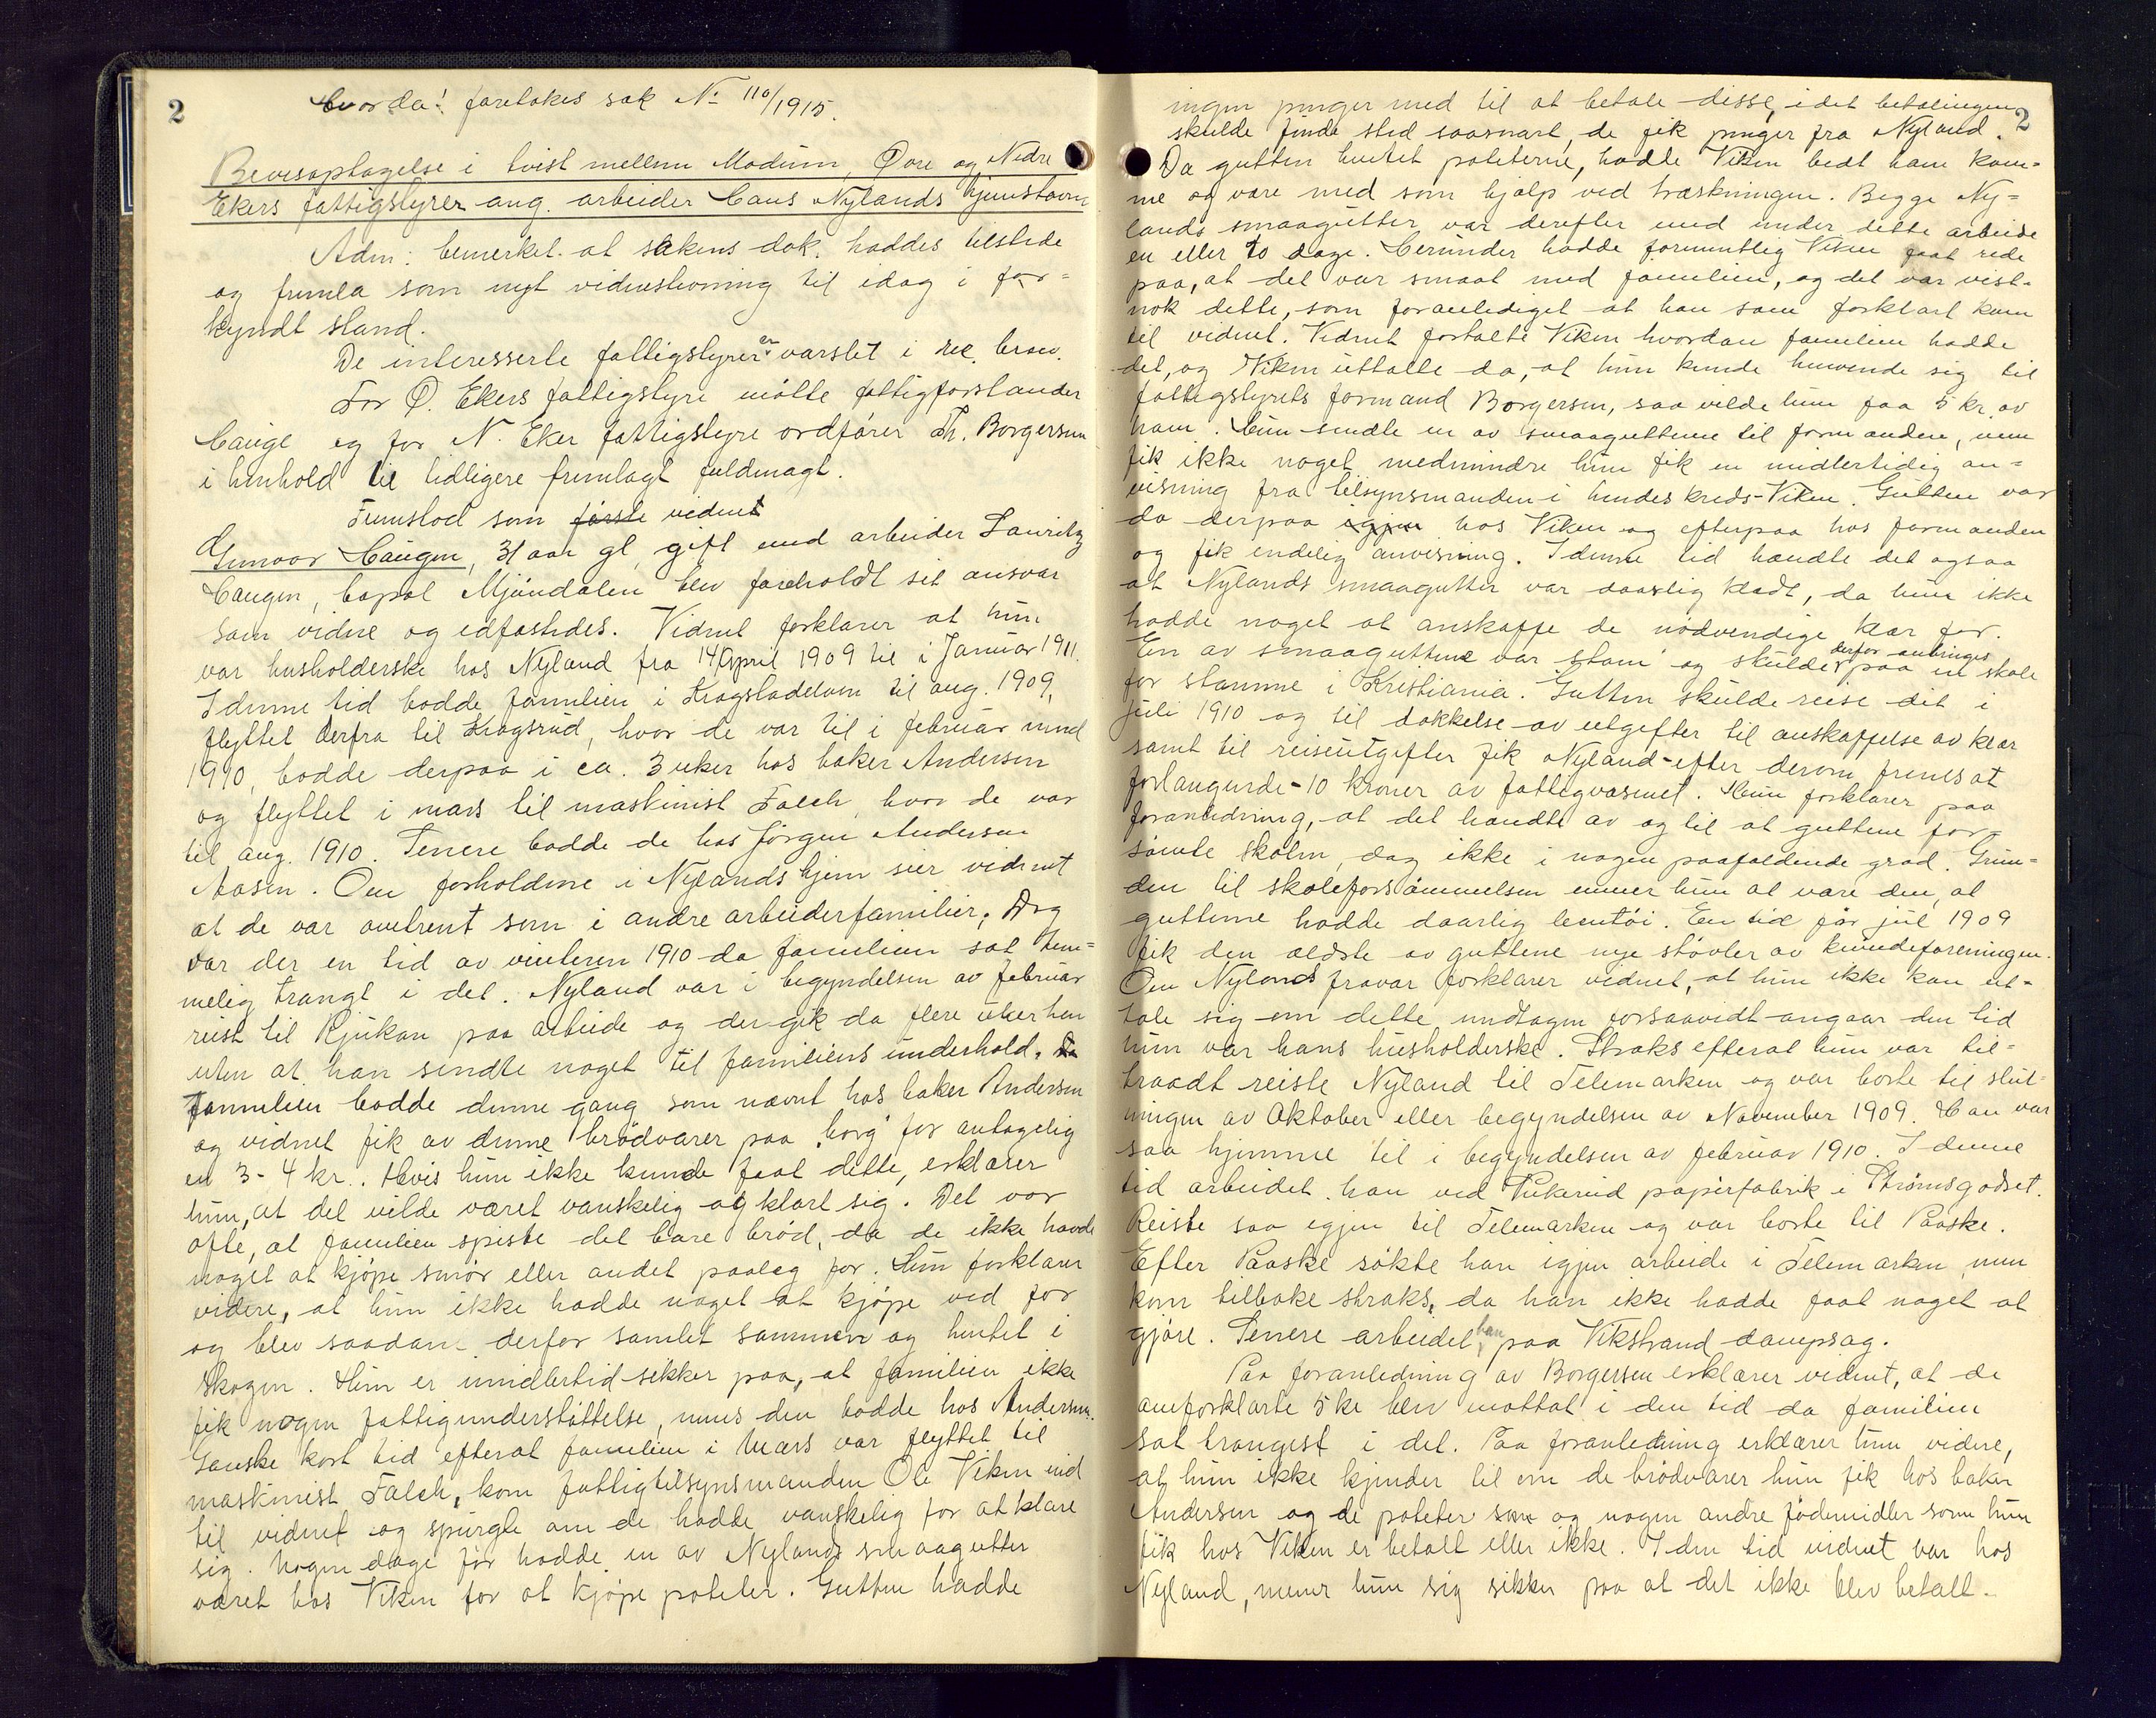 2
Hvorda! foretokes sak No 110/1915.
Bevisoptagelse i tvist mellem Modum, Øvre og Nedre
Ekers fattigstyrer ang. arbeider Hans Nylands hjemstavn
Adm: bemerket at sakens dok. haddes tilstede
og fremla som nyt vidnestevning til idag i for=
kyndt stand.
De interesserte fattigstyrer er varslet i rec. brev.
For Ø. Ekers fattigstyre møtte fattigforstander
Hauge og for N. Eker fattigstyre ordfører Th. Borgersen
i henhold til tidligere fremlagt fuldmagt.
Fremstod som første vidnet
Gunvor Haugen, 31 aar gl, gift med arbeider Lauritz
Haugen, bopæl Mjøndalen blev foreholdt sit ansvar
som vidne og edfæstedes. Vidnet forklarer at hun
var husholderske hos Nyland fra 14 April 1909 til i Januar 1911.
I denne tid bodde familien i Krogstadelven til aug. 1909,
flyttet derfra til Krogsrud, hvor de var til i februar mnd
1910, bodde derpaa i ca. 3 uker hos baker Andersen
og flyttet i mars til maskinist Falch, hvor de var
til aug. 1910. Senere bodde de hos Jørgen Andersen
Aasen. Om forholdene i Nylands hjem sier vidnet
at de var omtrent som i andre arbeiderfamilier; Dog
var der en tid av vinteren 1910 da familien sat tem=
melig trangt i det. Nyland var i begyndelsen av februar
reist til Rjukan paa arbeide og der gik da flere uker hen
uten at han sendte noget til familiens underhold. Da
Familien bodde denne gang som nævnt hos baker Andersen
og vidnet fik av denne brødvarer paa borg for antagelig
en 3-4 kr. Hvis hun ikke kunde faat dette, erklærer
hun, at det vilde været vanskelig at klart sig. Det var
ofte, at familien spiste det bare brød, da de ikke havde
noget at kjøpe smør eller andet paaleg for. Hun forklarer
videre, at hun ikke hadde noget at kjøpe ved for
og blev saadan derfor samlet sammen og hentet i
skogen. Hun er imidlertid sikker paa, at familien ikke
fik nogen fattigunderstøttelse, mens den bodde hos Andersen.
Ganske kort tid efterat familien i Mars var flyttet til
maskinist Falch, kom fattigtilsynsmanden Ole Viken ind
til vidnet og spurgte om de hadde vanskelig for at klare
sig. Nogen dage før hadde en av Nylands smaagutter
været hos Viken for at kjøpe poteter. Gutten hadde
2
ingen penger med til at betale disse, idet betalingen
skulde finde sted saasnart de fik penger fra Nyland.
Da gutten hentet poteterne, hadde Viken bedt ham kom=
me og være med som hjelp ved træskningen. Begge Ny=
lands smaagutter var derefter med under dette arbeide
en eller to dage. Herunder hadde formentlig Viken faat rede
paa, at det var smaat med familien, og det var vist-
nok dette, som foranlediget at han som forklart kom
til vidnet. Vidnet fortalte Viken hvordan familien hadde
det, og Viken uttalte da, at hun kunde henvende sig til
fattigstyrets formand Borgersen, saa vilde hun faa 5 kr. av
ham. Hun sendte en av smaaguttene til formanden, men
fik ikke noget medmindre hun fik en midlertidig an=
visning fra tilsynsmanden i hendes kreds-Viken. Gutten var
da derpaa igjen hos Viken og efterpaa hos formanden
og fik endelig anvisning. I denne tid hændte det ogsaa
at Nylands smaagutter var daarlig klædt, da hun ikke
hadde noget at anskaffe de nødvendige klær for.
En av smaaguttene var stam og skulde derfor anbringes paa en skole
for stamme i Kristiania. Gutten skulde reise dit i
juli 1910 og til dækkelse av utgifter til anskaffelse av klær
samt til reiseutgifter fik Nyland-efter derom fremsat
forlangende-10 kroner av fattigvæsenet. Hun forklarer paa
foranledning, at det hændte av og til at guttene for-
sømte skolen, dog ikke i nogen paafaldende grad. Grun=
den til skoleforsømmelsen mener hun at være den, at
guttene hadde daarlig bentøi. En tid før jul 1909
fik den ældste av guttene nye støvler av kvindeforeningen.
Om Nylands fravær forklarer vidnet, at hun ikke kan ut=
tale sig om dette undtagen forsaavidt angaar den tid
hun var hans husholderske. Straks efterat hun var til=
traadt reiste Nyland til Telemarken og var borte til slut=
ningen av Oktober eller begyndelsen av November 1909. Han var
saa hjemme til i begyndelsen av februar 1910. I denne
tid arbeidet han ved Pukerud papirfabrik i Strømsgodset.
Reiste saa igjen til Telemarken og var borte til Paaske.
Efter Paaske søkte han igjen arbeide i Telemarken, men
kom tilbake straks, da han ikke hadde faat noget at
gjøre. Senere arbeidet han paa Vikstrand dampsag.
Paa foranledning av Borgersen erklærer vidnet, at de
omforklarte 5 kr blev mottat i den tid da familien
sat trangest i det. Paa foranledning erklærer hun videre,
at hun ikke kjender til om de brødvarer hun fik hos baker
Andersen og de poteter som og nogen andre fødemidler som hun
fik hos Viken er betalt eller ikke. I den tid vidnet var hos
Nyland, mener hun sig sikker paa at det ikke blev betalt.